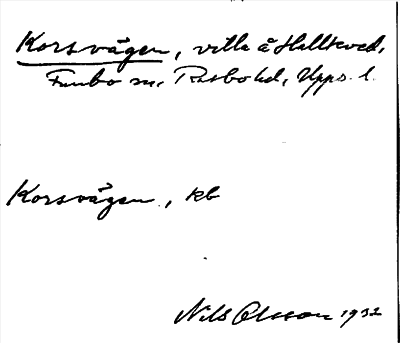 Korsvägen, villa å Hallkved,
Funbo sn, Rasbo hd, Upps. l.
Korsvägen, kb
Nils Olsson 1932